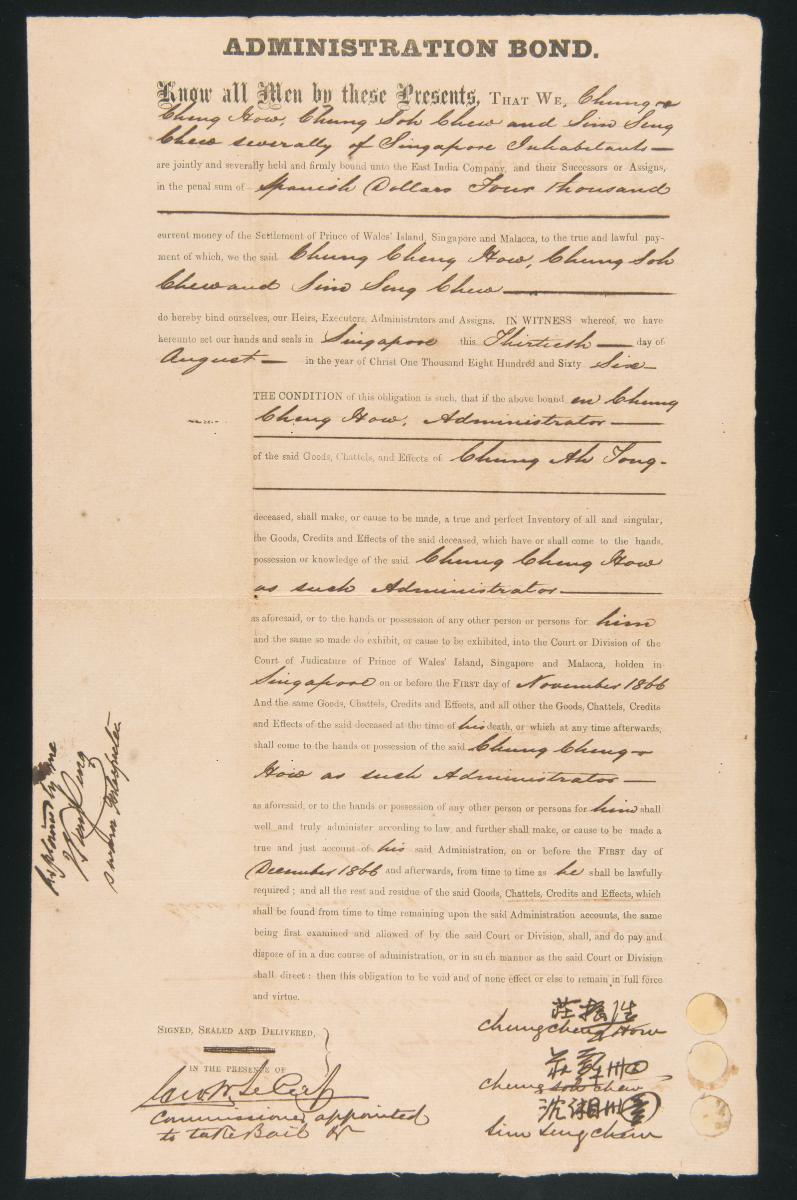 ADMINISTRATION BOND.
Know all Men by these Presents, THAT WE, Chung
Cheng How, Chung Soh Chew and Sim Seng
Chew severally of Singapore Inhabitants —
are jointly and severally held and firmly bound unto the East India Company, and their Successors or Assigns,
in the penal sum of Spanish Dollars Four thousand
current money of the Settlement of Prince of Wales' Island, Singapore and Malacca, to the true and lawful pay-
ment of which, we the said Chung Cheng How, Chung Soh
Chew and Sim Seng Chew —
do hereby bind ourselves, our Heirs, Executors, Administrators and Assigns. IN WITNESS whereof, we have
hereunto set our hands and seals in Singapore this Thirtieth — day of
August — in the year of Christ One Thousand Eight Hundred and Sixty Six —
THE CONDITION of this obligation is such, that if the above bound en Chung
Cheng How, Administrator —
of the said Goods, Chattels, and Effects of Chung Ah Tong -
deceased, shall make, or cause to be made, a true and perfect Inventory of all and singular,
the Goods, Credits and Effects of the said deceased, which have or shall come to the hands,
possession or knowledge of the said Chung Cheng How
as such Administrator —
as aforesaid, or to the hands or possession of any other person or persons for him
and the same so made do exhibit, or cause to be exhibited, into the Court or Division of the
Court of Judicature of Prince of Wales' Island, Singapore and Malacca, holden in
Singapore on or before the FIRST day of November 1866
And the same Goods, Chattels, Credits and Effects, and all other the Goods, Chattels, Credits
and Effects of the said deceased at the time of his death, or which at any time afterwards,
shall come to the hands or possession of the said Chung Cheng
How as such Administrator —
as aforesaid, or to the hands or possession of any other person or persons for him shall
well and truly administer according to law, and further shall make, or cause to be made a
true and just account of his said Administration, on or before the FIRST day of
December 1866 and afterwards, from time to time as he shall be lawfully
required; and all the rest and residue of the said Goods, Chattels, Credits and Effects, which
shall be found from time to time remaining upon the said Administration accounts, the same
being first examined and allowed of by the said Court or Division, shall, and do pay and
dispose of in a due course of administration, or in such manner as the said Court or Division
shall direct: then this obligation to be void and of none effect or else to remain in full force
and virtue.
Explained by me
SIGNED, SEALED AND DELIVERED,
IN THE PRESENCE OF
Commissioner appointed
to take Bail &c
chung cheng How
chung soh chew
沈湘州
sim seng chew